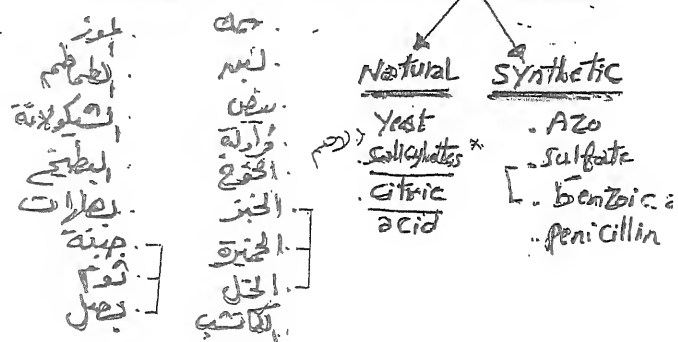 Natural
Yeast
. Salicylates *
. Citric
acid
Synthetic
. Azo
. Sulfate
. benzoic a
. penicillin
. سمك
. لبن
. بيض
. فراولة
. الخوخ
. الخبز
. الخميرة
. الخل
. الكاتشب
. الموز
. الطماطم
. الشيكولاتة
. البطيخ
. بهارات
. جبنة
. ثوم
. بصل